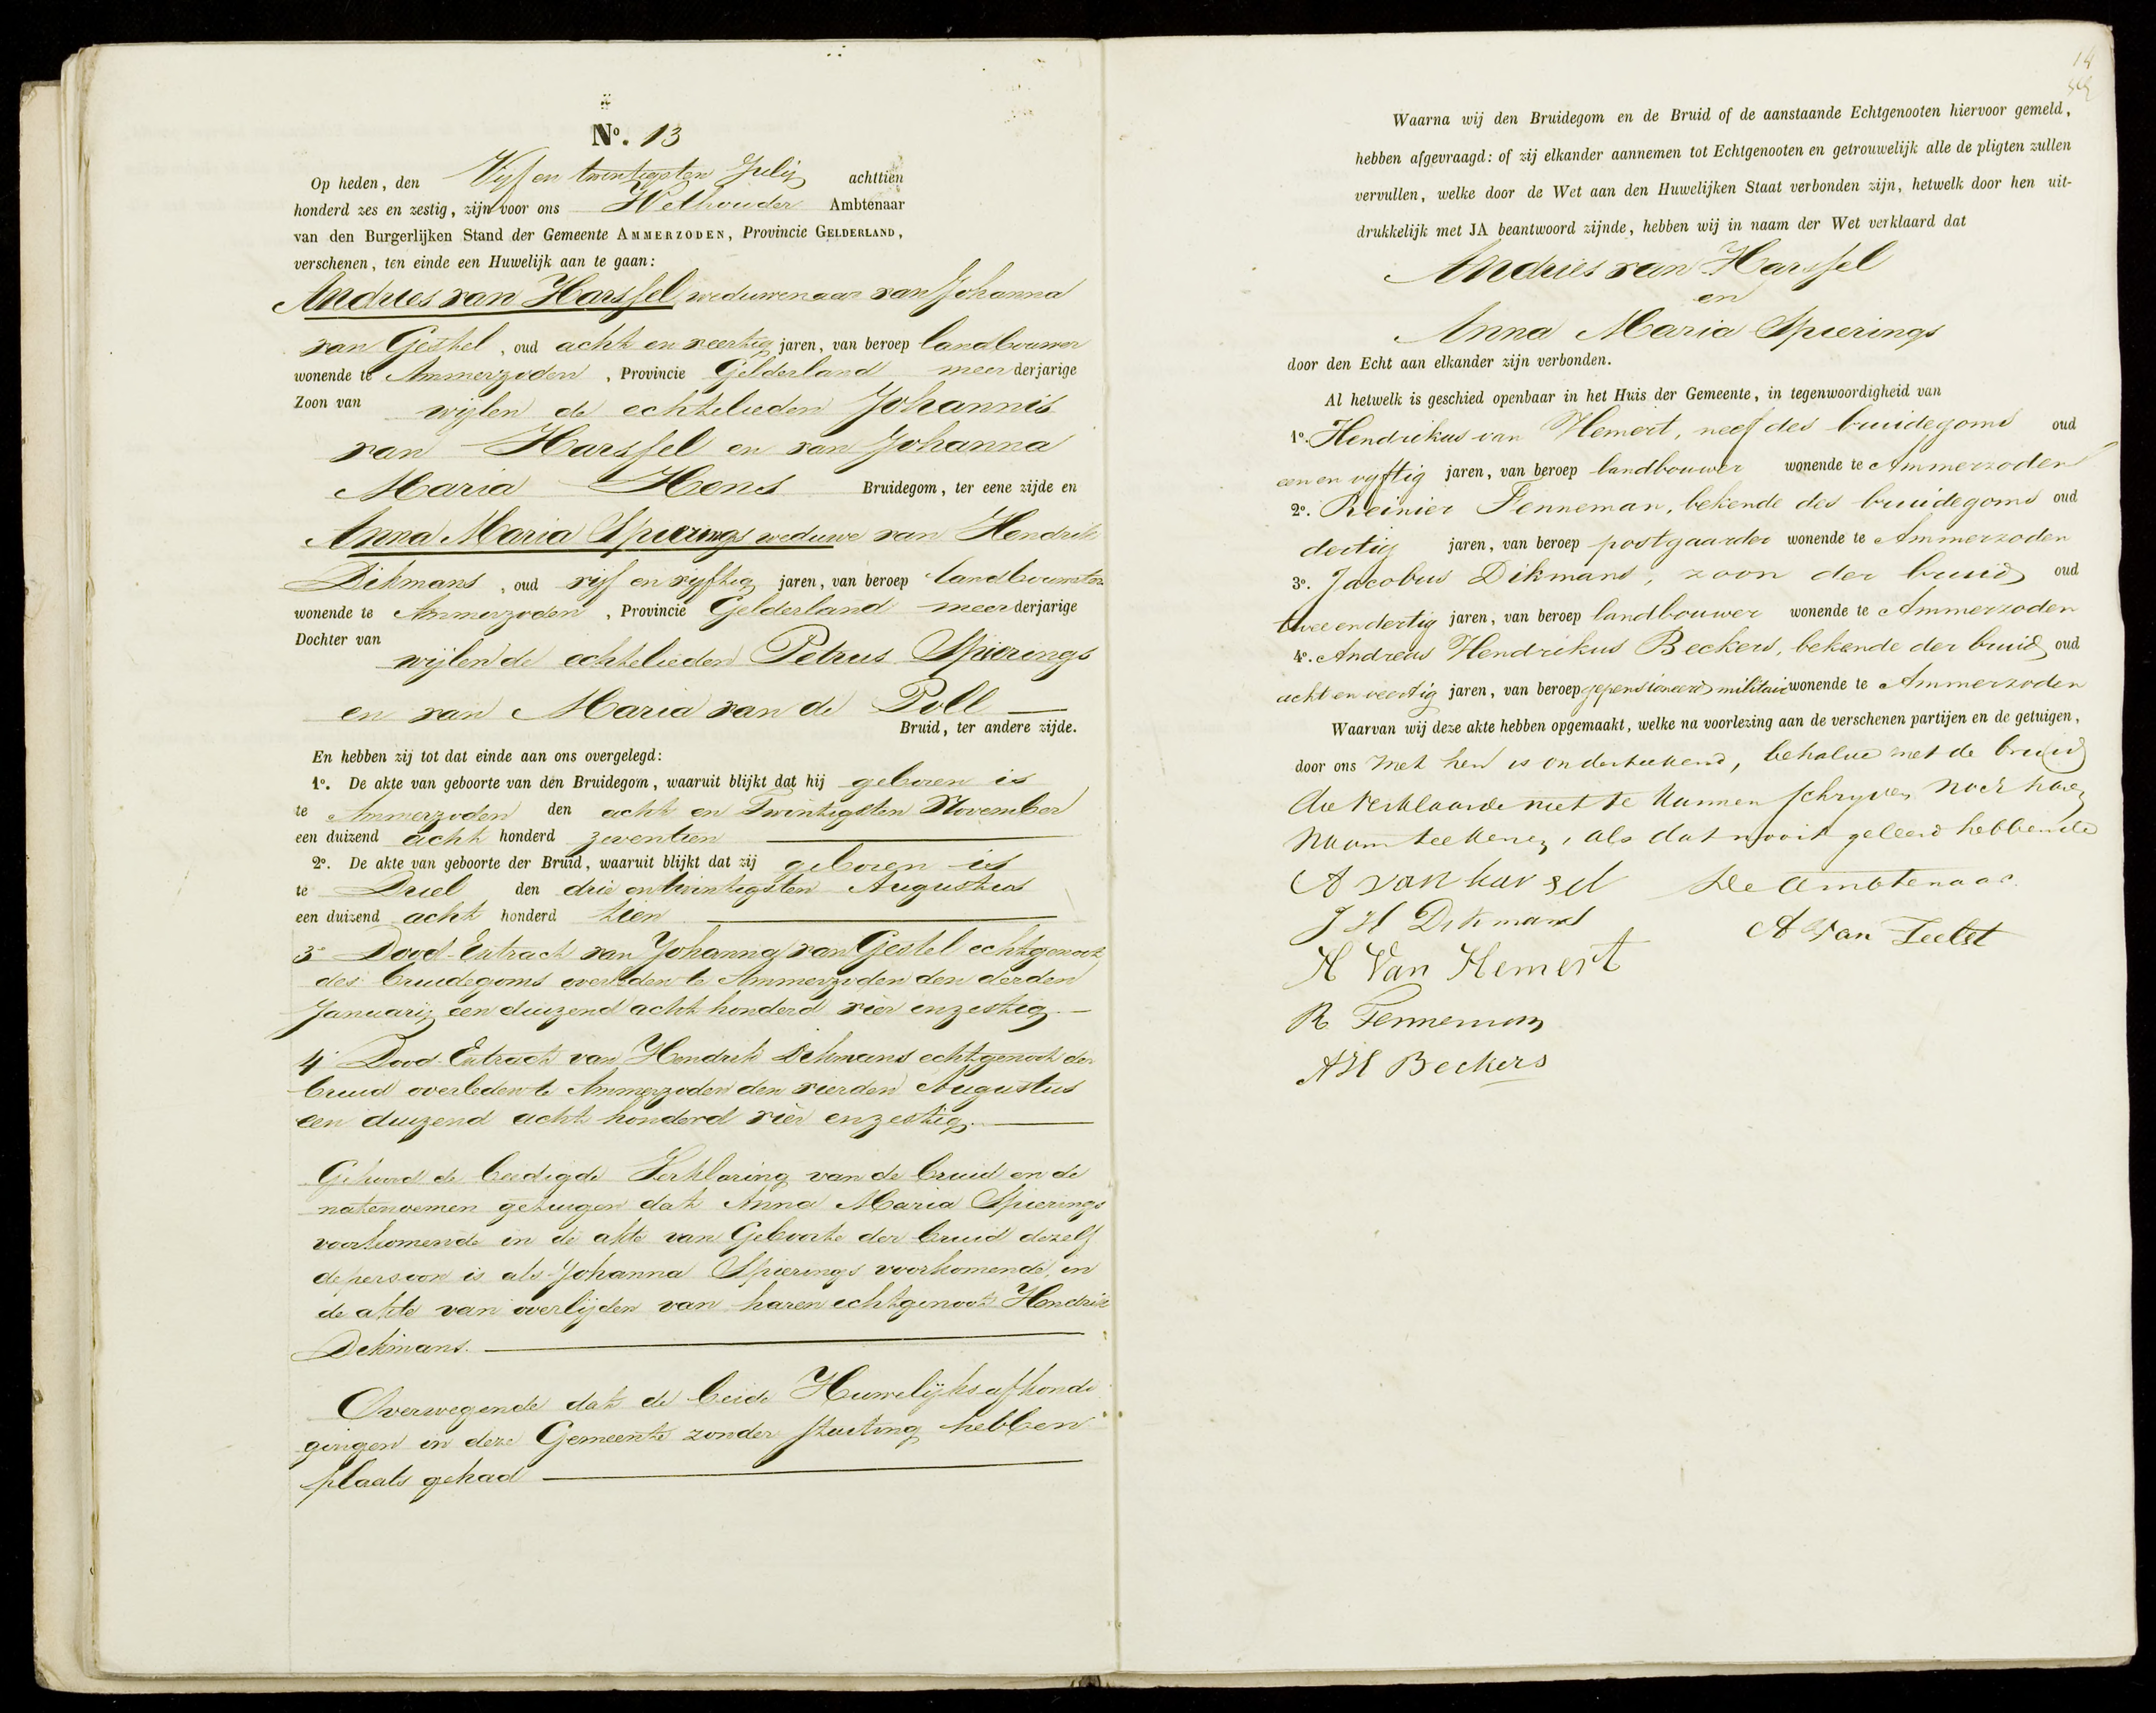 No. 13
Op heden, den Vijf en twintigsten Julij achttien
honderd zes en zestig, zijn voor ons Wethouder Ambtenaar
van den Burgerlijken Stand der Gemeente AMMERZODEN, Provincie GELDERLAND,
verschenen, ten einde een Huwelijk aan te gaan:
Andries van Harssel weduwenaar van Johanna
van Gestel, oud acht en veertig jaren, van beroep landbouwer
wonende te Ammerzoden, Provincie Gelderland meerderjarige
Zoon van wijlen de echtelieden Johannis
van Harssel en van Johanna
Maria Hens Bruidegom, ter eene zijde en
Anna Maria Spierings weduwe van Hendrik
Dikmans, oud vijf en vijftig jaren, van beroep landbouwster
wonende te Ammerzoden, Provincie Gelderland meerderjarige
Dochter van wijlen de echtelieden Petrus Spierings
en van Maria van de Poll
Bruid, ter andere zijde.
En hebben zij tot dat einde aan ons overgelegd:
1o. De akte van geboorte van den Bruidegom, waaruit blijkt dat hij geboren is
te Ammerzoden den acht en Twintigsten November
een duizend acht honderd zeventien
2o. De akte van geboorte der Bruid, waaruit blijkt dat zij geboren is
te Driel den drie en twintigsten Augustus
een duizend acht honderd tien
3o Dood-Extract van Johanna van Gestel echtgenoot
des bruidegoms overleden te Ammerzoden den derden
Januarij een duizend acht honderd vier en zestig
4o Dood-Extract van Hendrik Dikmans echtgenoot der
bruid overleden te Ammerzoden den vierden Augustus
een duizend acht honderd vier en zestig.
Gehoord de beëdigde Verklaring van de bruid en de
natenoemen getuigen dat Anna Maria Spierings
voorkomende in de akte van Geboorte der bruid dezelf
de persoon is als Johanna Spierings voorkomende in
de akte van overlijden van haren echtgenoot Hendrik
Dikmans.
Overwegende dat de beide Huwelijks afkondi
gingen in deze Gemeente zonder stuiting hebben
plaats gehad
14
Waarna wij den Bruidegom en de Bruid of de aanstaande Echtgenooten hiervoor gemeld,
hebben afgevraagd: of zij elkander aannemen tot Echtgenooten en getrouwelijk alle de pligten zullen
vervullen, welke door de Wet aan den Huwelijken Staat verbonden zijn, hetwelk door hen uit-
drukkelijk met JA beantwoord zijnde, hebben wij in naam der Wet verklaard dat
Andries van Harssel
en
Anna Maria Spierings
door den Echt aan elkander zijn verbonden.
Al hetwelk is geschied openbaar in het Huis der Gemeente, in tegenwoordigheid van
1o. Hendrikus van Hemert, neef des bruidegoms oud
een en vyftig jaren, van beroep landbouwer wonende te Ammerzoden
2o. Reinier Fenneman, bekende des bruidegoms oud
dertig jaren, van beroep postgaarder wonende te Ammerzoden
3o. Jacobus Dikmans, zoon der bruid oud
twee en dertig jaren, van beroep landbouwer wonende te Ammerzoden
4o. Andreas Hendrikus Beckers, bekende der bruid oud
acht en veertig jaren, van beroep gepensioneerd militair wonende te Ammerzoden
Waarvan wij deze akte hebben opgemaakt, welke na voorlezing aan de verschenen partijen en de getuigen,
door ons met hen is onderteekend, behalve met de bruid
die verklaarde niet te kunnen schryven noch haar
naam teekenen, als dat nooit geleerd hebbende
A van harsel De ambtenaar
J H Dikmans A van Teelst
H Van Hemert
R Fenneman
AH Beckers